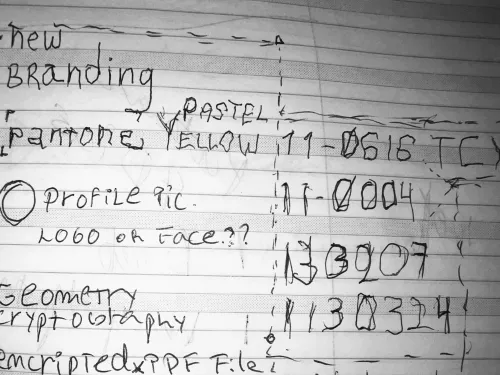 new
BRanding
PASTEL
Pantone YELLOW 11-0616 TCX
PROFILE Pic. 11-0004
LOGO OR FACE??
GEOMETRY
CRYPTOGRAPHY 1130324
encripted PDF FILE